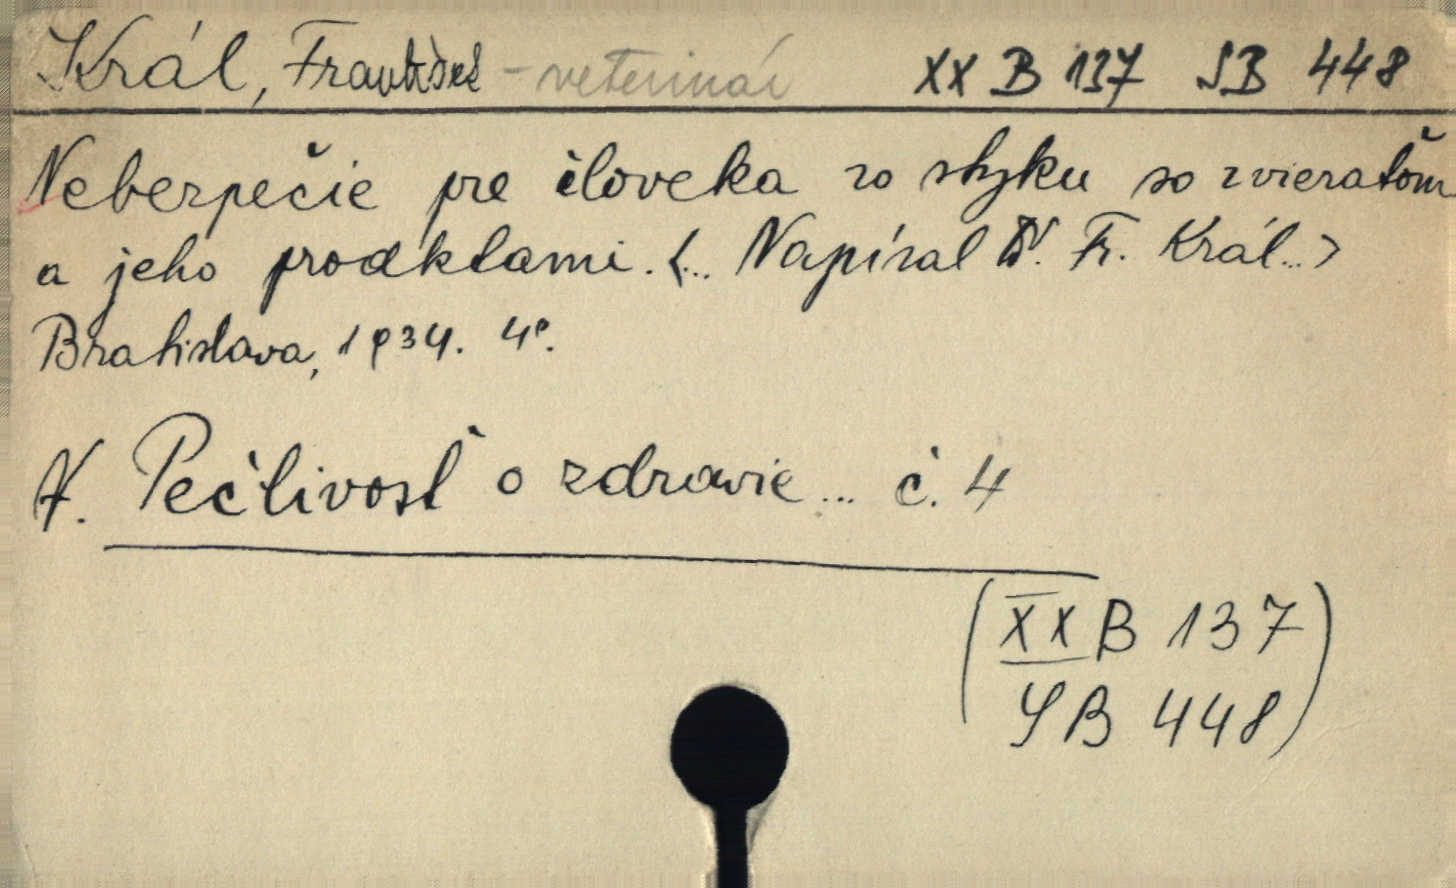 Král, František - veterinár XX B 137 SB 448
Neberpečie pre človeka zo styku so zvieraťom
a jeho prodktami. <... Napísal Dr. Fr. Král...>
Bratislava, 1934. 4°.
V. Pečlivosť o zdravie... č. 4
(XX B 137
SB 448)